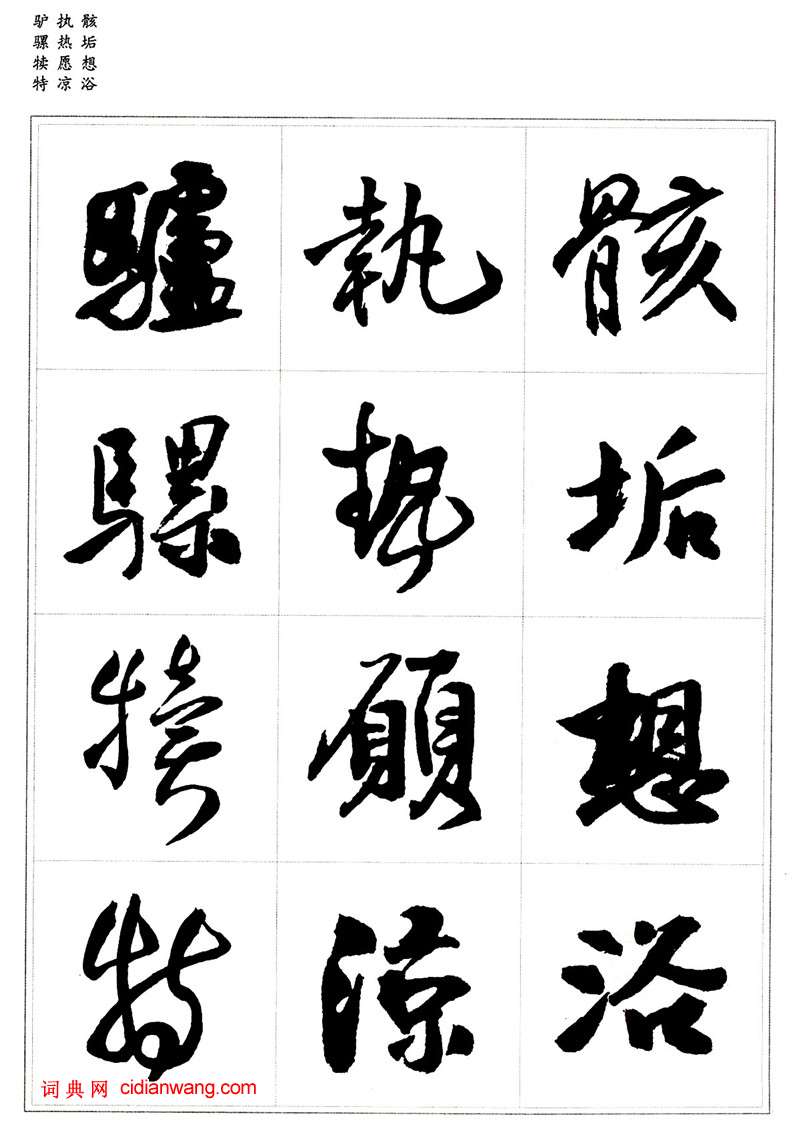 骸垢想浴
执热愿凉
驴骡犊特
骸垢想浴
執熱願涼
驢騾犢特
词典网 cidianwang.com